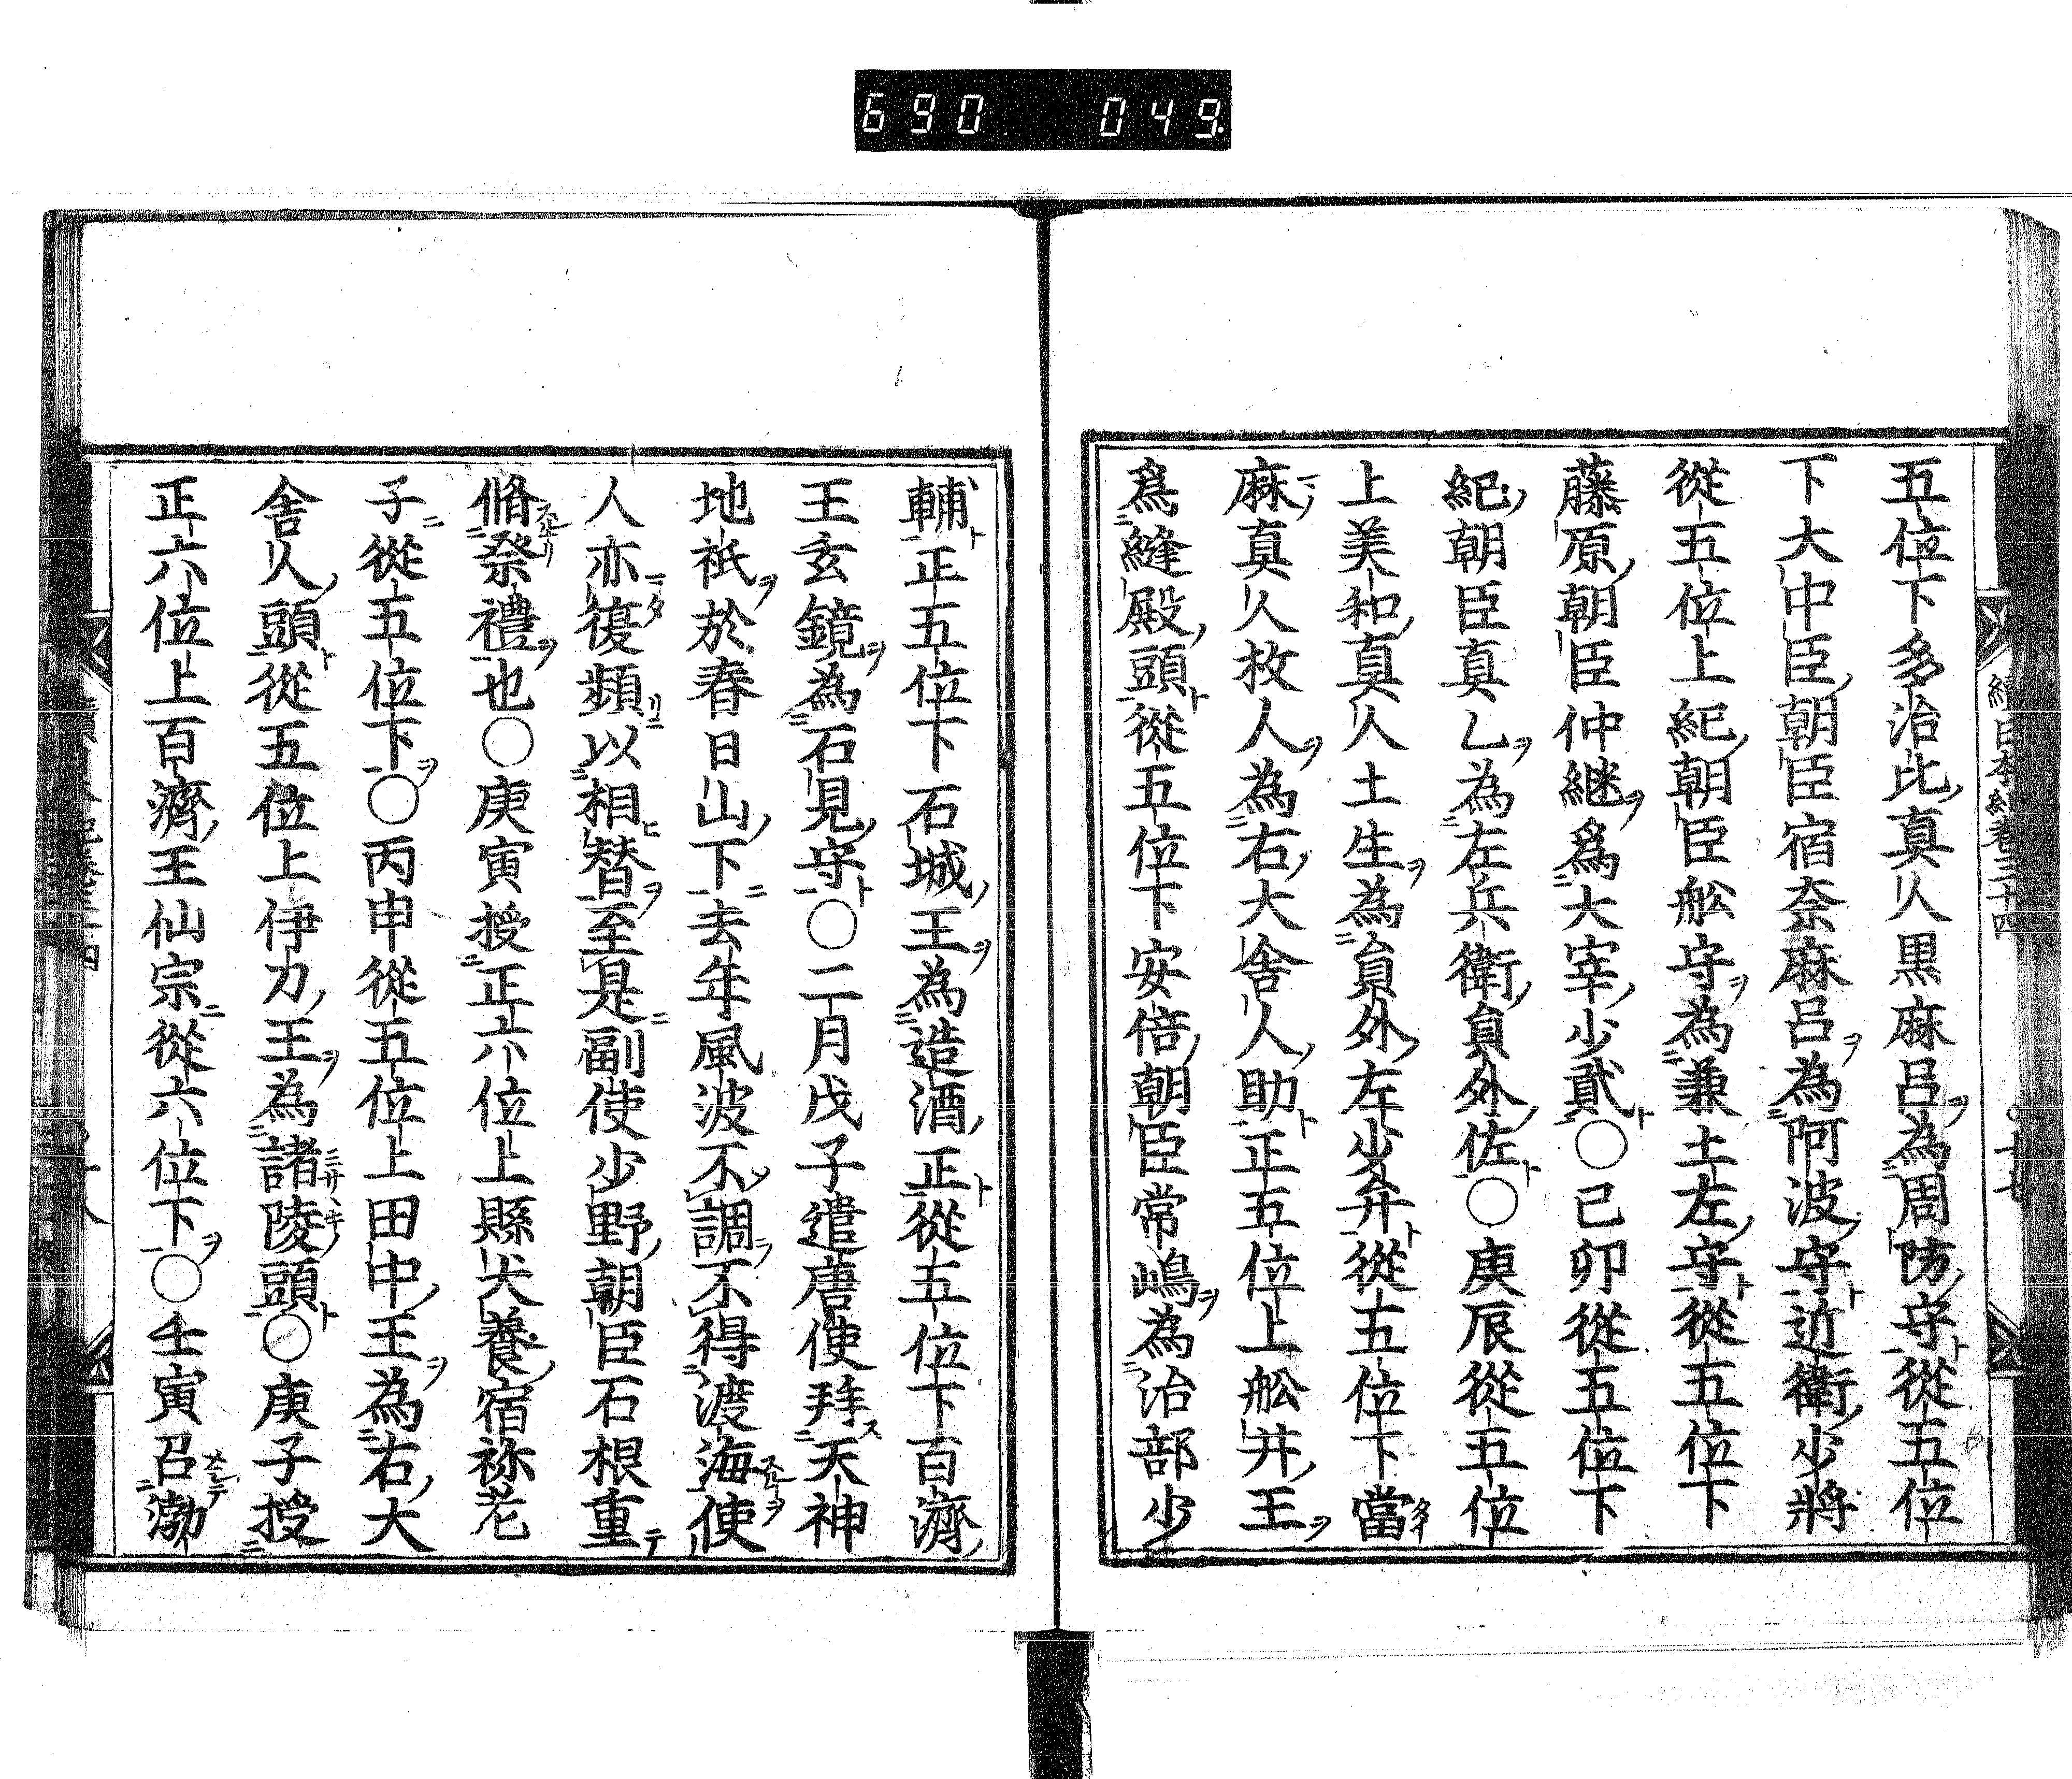 690 049
五位下多治比真人黒麻呂為周防守從五位
下大中臣朝臣宿奈麻呂為阿波守近衛少將
從五位上紀朝臣舩守為兼土左守從五位下
藤原朝臣仲継爲大宰少貳○己卯從五位下
紀朝臣真乙為左兵衛員外佐○庚辰從五位
上美和真人土生為員外左少弁從五位下當
麻真人枚人為右大舍人助正五位上舩井王
爲縫殿頭從五位下安倍朝臣常嶋為治部少
輔正五位下石城王為造酒正從五位下百濟
王玄鏡為石見守○二月戊子遣唐使拜天神
地祇於春日山下去年風波不調不得渡海使
人亦復頻以相替至是副使少野朝臣石根重
脩祭禮也○庚寅授正六位上縣犬養宿祢荖
子從五位下○丙申從五位上田中王為右大
舍人頭從五位上伊刀王為諸陵頭○庚子授
正六位上百濟王仙宗從六位下○壬寅召渤